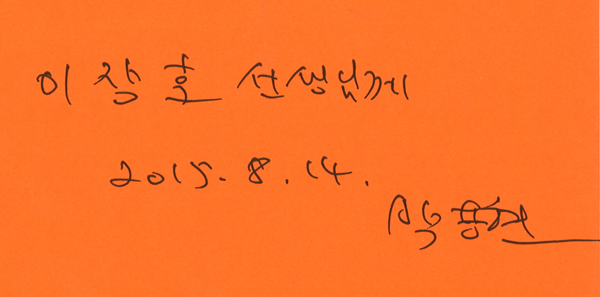 이장호 선생님께
2015. 8. 14.